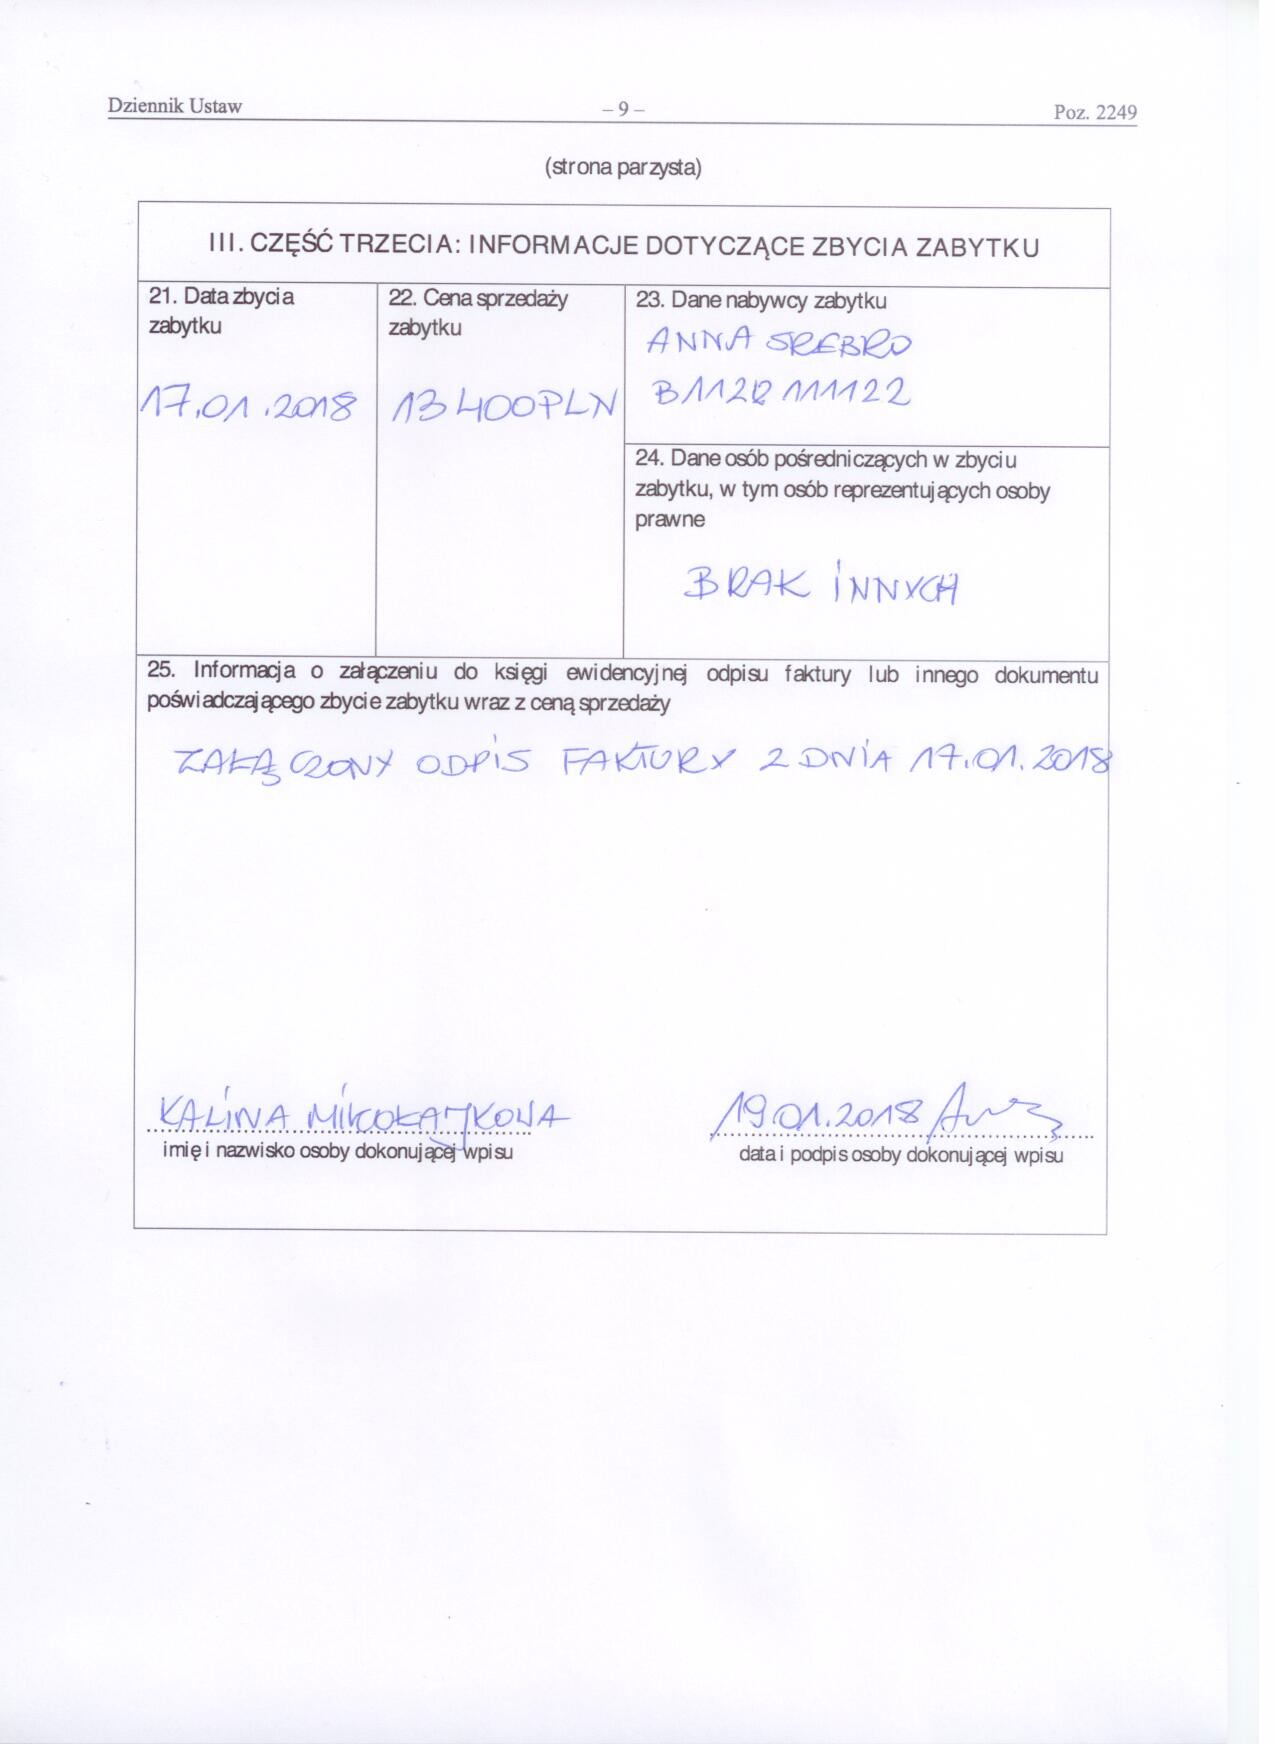 Dziennik Ustaw
– 9 –
Poz. 2249
(strona parzysta)
III. CZĘŚĆ TRZECIA: INFORMACJE DOTYCZĄCE ZBYCIA ZABYTKU
21. Data zbycia
zabytku
17.01.2018
22. Cena sprzedaży
zabytku
13 400 PLN
23. Dane nabywcy zabytku
ANNA SREBRO
24. Dane osób pośredniczących w zbyciu
zabytku, w tym osób reprezentujących osoby
prawne
BRAK INNYCH
25. Informacja o załączeniu do księgi ewidencyjnej odpisu faktury lub innego dokumentu
poświadczającego zbycie zabytku wraz z ceną sprzedaży
ZAŁĄCZONY ODPIS FAKTURY Z DNIA 17.01.2018
KALINA MIKOŁAJKOWA
imię i nazwisko osoby dokonującej wpisu
19.01.2018
data i podpis osoby dokonującej wpisu